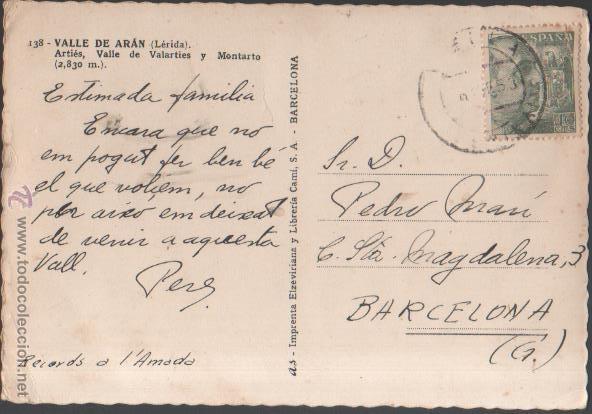 138 - VALLE DE ARÁN (Lérida).
Artiés, Valle de Valarties y Montarto
(2,830 m.)
Estimada familia
Encara que no
em pogut fer ben bé
el que voliem, no
per aixó em deixat
de venir a aquesta
Vall.
Pere
Records a l'Amada
as - Imprenta Elzeviriana y Librería Camí, S. A. - BARCELONA
ESPAÑA
Sr. D.
Pedro Marí
C. Sta. Magdalena, 3
BARCELONA
(G.)
www.todocoleccion.net